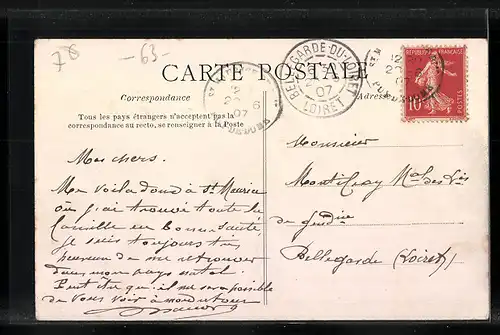 78
-63-
CARTE POSTALE
Correspondance
Adresse
Tous les pays étrangers n'acceptent pas la
correspondance au recto, se renseigner à la Poste
BELLEGARDE-DU-LOIRET
07
LOIRET
PUY-DE-DOME
07
REPUBLIQUE FRANÇAISE
POSTES
10
Mes chers.
Me voila donc à St Maurice
où j'ai trouvé toute la
famille en bonne santé,
je suis toujours très
heureux de me retrouver
dans mon pays natal.
Peut être qu'il me sera possible
de vous voir à mon retour
Monsieur
Mal des Lis
de Gendrie
Bellegarde (Loiret)